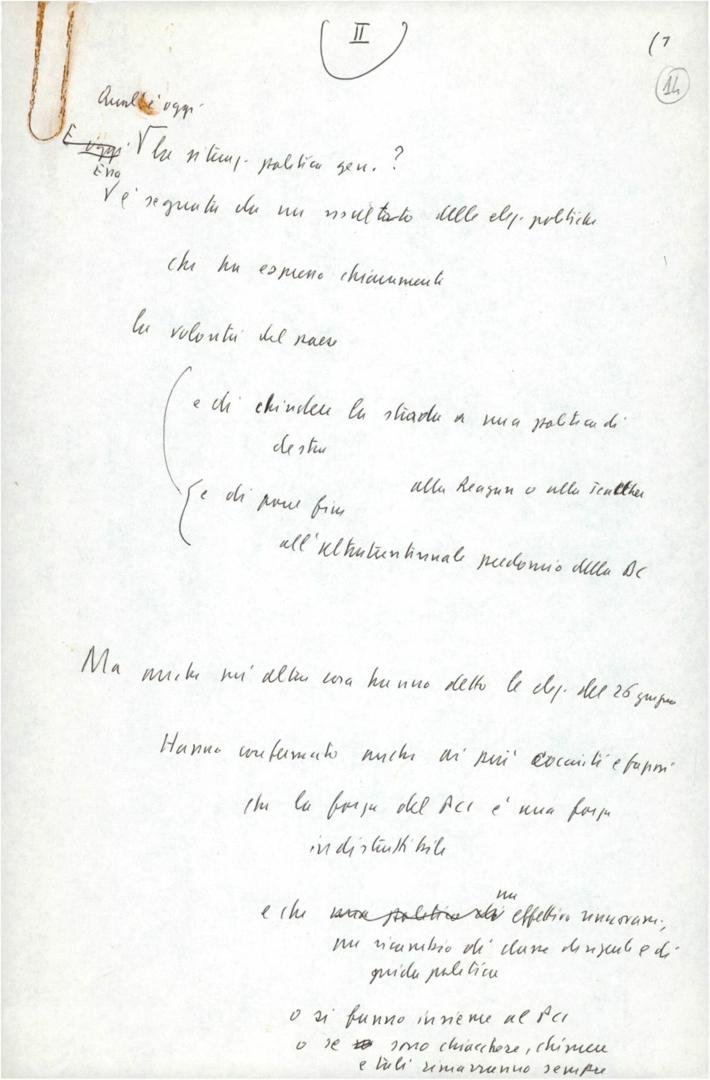 II
(7
14
Qual è oggi
E oggi la situaz. politica gen.?
Essa
è segnata da un risultato delle elez. politiche
che ha espresso chiaramente
la volontà del paese
e di chiudere la strada a una politica di
destra
alla Reagan o alla Teatcher
e di porre fine
all'ultratrentennale predominio della DC
Ma anche un'altra cosa hanno detto le elez. del 26 giugno
Hanno confermato anche ai più cocciuti e faziosi
che la forza del PCI è una forza
indistruttibile
un
e che una politica di effettivo rinnovam.,
un ricambio di classe dirigente e di
guida politica
o si fanno insieme al PCI
o se sono chiacchere, chimere
e tali rimarranno sempre